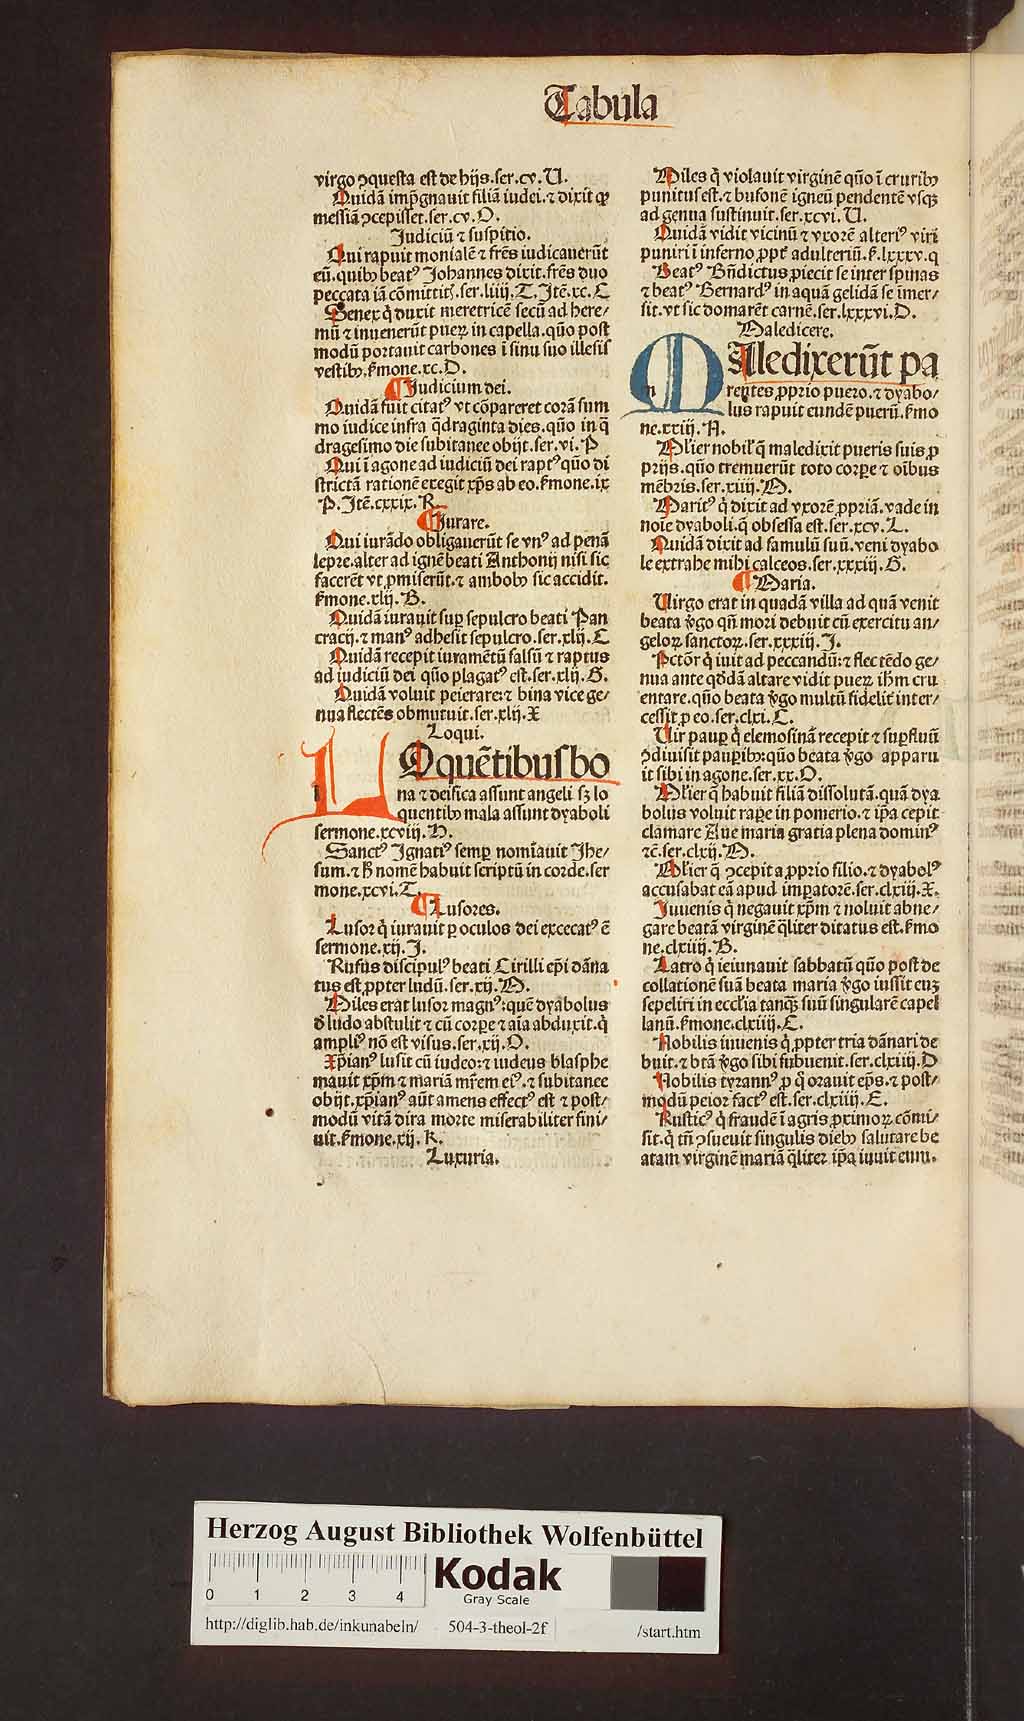 Tabula
virgo ꝯquesta est de hijs.ser.cv.U.
Quidã imp̃gnauit filiã iudei.⁊ dixit ꝙ
messiã ꝯcepisset.ser.cv.O.
Judiciũ ⁊ suspitio.
Qui rapuit monialẽ ⁊ fr̃es iudicauerũt
eũ.quibꝰ beatꝰ Johannes dixit.fr̃es duo
peccata iã cõmittit.ser.liiij.T.Itẽ.xc.C
Senex q̇ duxit meretricẽ secũ ad here/
mũ ⁊ inuenerũt pueꝝ in capella.quõ post
modũ portauit carbones ĩ sinu suo illesis
vestibꝰ.ẜmone.xc.D.
Judicium dei.
Quidã fuit citatꝰ vt cõpareret corã sum
mo iudice infra q̃draginta dies.quõ in q̃
dragesimo die subitanee obijt.ser.vi.P
Qui ĩ agone ad iudiciũ dei raptꝰ quõ di
strictã rationẽ exegit xp̃s ab eo.ẜmone.ix
P.Itẽ.cxxix.R.
Jurare.
Qui iurãdo obligauerũt se vnꝰ ad penã
lepre.alter ad ignẽ beati Anthonij nisi sic
facerẽt vt ꝓmiserũt.⁊ ambobꝰ sic accidit.
ẜmone.xlij.B.
Quidã iurauit suꝑ sepulcro beati Pan
cracij ⁊ manꝰ adhesit sepulcro.ser.xlij.C
Quidã recepit iuramẽtũ falsũ ⁊ raptus
ad iudiciũ dei quõ plagatꝰ est.ser.xlij.G.
Quidã voluit peierare:⁊ bina vice ge/
nua flectẽs obmutuit.ser.xlij.X
Loqui.
LOquẽtibus bo
na ⁊ deifica assunt angeli sꝫ lo
quentibꝰ mala assunt dyaboli
sermone.xcviij.H.
Sanctꝰ Ignatiꝰ semꝑ nominauit Jhe/
sum.⁊ h̃ nomẽ habuit scriptũ in corde.ser
mone.xcvi.T.
Lusores.
Lusor q̇ iurauit ꝑ oculos dei excecatꝰ ẽ
sermone.xij.J.
Rufus discipulꝰ beati Cirilli ep̃i dãna
tus est ꝓpter ludũ.ser.xij.M.
Miles erat lusor magnꝰ:quẽ dyabolus
d̃ ludo abstulit ⁊ cũ corꝑe ⁊ aĩa abduxit.q̇
ampliꝰ nõ est visus.ser.xij.O.
Xp̃ianꝰ lusit cũ iudeo:⁊ iudeus blasphe
mauit xp̃m ⁊ mariã mr̃em eiꝰ.⁊ subitanee
obijt.xp̃ianꝰ aũt amens effectꝰ est ⁊ post/
modũ vitã dira morte miserabiliter fini/
uit.ẜmone.xij.K.
Luxuria.
Miles q̇ violauit virginẽ quõ ĩ cruribꝰ
punitus est.⁊ bufonẽ igneũ pendentẽ vsqꝫ
ad genua sustinuit.ser.xcvi.U.
Quidã vidit vicinũ ⁊ vxorẽ alteriꝰ viri
puniri ĩ inferno ꝓpt̃ adulteriũ.ẜ.lxxxv.q
Beatꝰ Bñdictus ꝓiecit se inter spinas
⁊ beatꝰ Bernardꝰ in aquã gelidã se ĩmer/
sit.vt sic domarẽt carnẽ.ser.lxxxvi.D.
Maledicere.
MAledixerũt pa
rentes ꝓprio puero.⁊ dyabo/
lus rapuit eundẽ puerũ.ẜmo
ne.xxiij.A.
Mĺier nobiĺ q̃ maledixit pueris suis ꝓ
prijs.quõ tremuerũt toto corꝑe ⁊ oĩbus
mẽbris.ser.xiiij.M.
Maritꝰ q̇ dixit ad vxorẽ ꝓpriã.vade in
noie dyaboli.q̃ obsessa est.ser.xcv.L.
Quidã dixit ad famulũ suũ.veni dyabo
le extrahe mihi calceos.ser.xxxiij.G.
Maria.
Uirgo erat in quadã villa ad quã venit
beata v̾go qñ mori debuit cũ exercitu an/
geloꝝ sanctoꝝ.ser.xxxiij.J.
Pctõr q̇ iuit ad peccandũ:⁊ flectẽdo ge/
nua ante qd̃dã altare vidit pueꝝ ih̃m cru
entare.quõ beata v̾go multũ fidelit̃ inter/
cessit ꝑ eo.ser.clxi.C.
Uir pauꝑ q̇ elemosinã recepit ⁊ suꝑfluũ
ꝯdiuisit pauꝑibꝰ:quõ beata v̾go apparu
it sibi in agone.ser.xx.O.
Mĺier q̃ habuit filiã dissolutã.quã dya
bolus voluit raꝑe in pomerio.⁊ ip̃a cepit
clamare Aue maria gratia plena dominꝰ
⁊c̃.ser.clxij.M.
Mĺier q̃ ꝯcepit a ꝓprio filio.⁊ dyabolꝰ
accusabat eã apud imꝑatorẽ.ser.clxiij.X.
Juuenis q̇ negauit xp̃m ⁊ noluit abne/
gare beatã virginẽ q̃liter ditatus est.ẜmo
ne.clxiij.B.
Latro q̇ ieiunauit sabbatũ quõ post de
collationẽ suã beata maria v̾go iussit euꝫ
sepeliri in eccĺia tanqꝫ suũ singularẽ capel
lanũ.ẜmone.clxiiij.C.
Nobilis iuuenis q̇ ꝓpter tria dãnari de
buit.⁊ btã v̾go sibi subuenit.ser.clxiiij.D
Nobilis tyrannꝰ ꝑ q̇ orauit ep̃s.⁊ post/
modũ peior factꝰ est.ser.clxiiij.E.
Rusticꝰ q̇ fraudẽ ĩ agris ꝓximoꝝ cõmi/
sit.q̇ tñ ꝯsueuit singulis diebꝰ salutare be
atam virginẽ mariã q̃liter ip̃a iuuit eum.
Herzog August Bibliothek Wolfenbüttel
0 1 2 3 4
Kodak
Gray Scale
http://diglib.hab.de/inkunabeln/ 504-3-theol-2f /start.htm